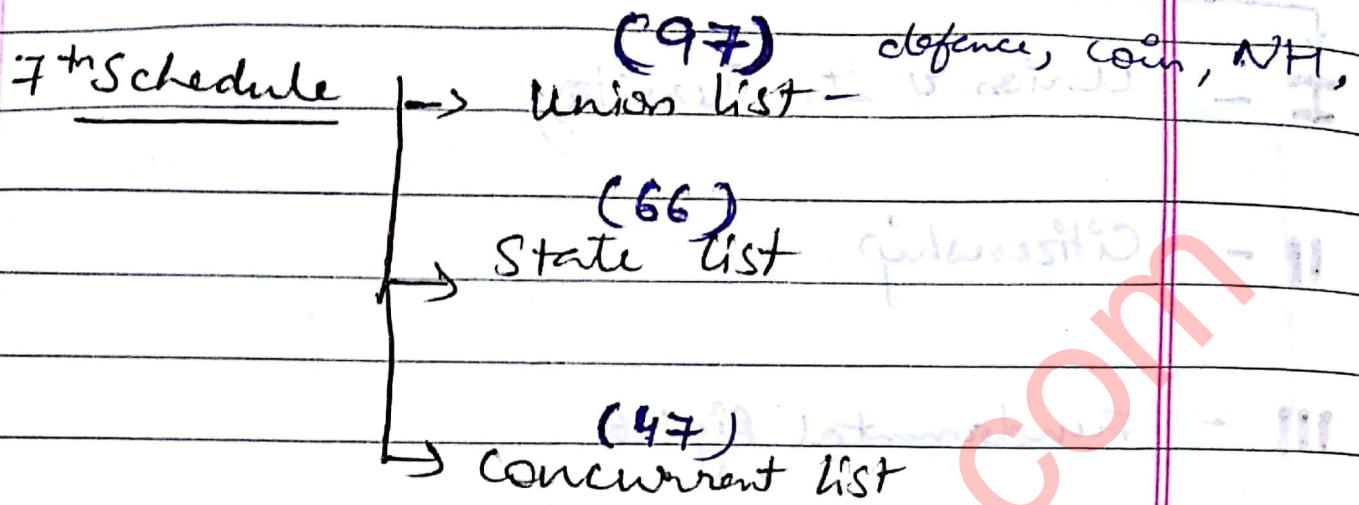 7th Schedule
(97)
→ Union list - defence, coin, NH,
(66)
→ State list
(47)
→ Concurrent list
com